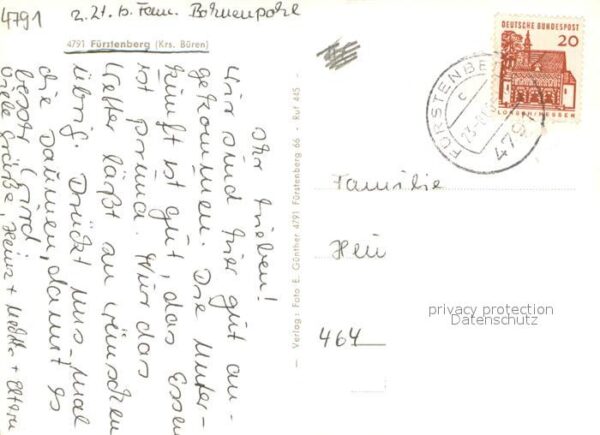 4791 z. Zt. b. Fam. Bohnenpohl
4791 Fürstenberg (Krs. Büren)
Ihr Lieben!
Wir sind hier gut an-
gekommen. Die Unter-
kunft ist gut, das Essen
ist prima. Nur das
Wetter läßt zu wünschen
übrig. Drückt uns mal
die Daumen, damit es
besser wird.
Viele Grüße, Heinz + + Eltern
– Verlag: Foto E. Günther 4791 Fürstenberg 66 - Ruf 445 –
DEUTSCHE BUNDESPOST
20
LORSCH/HESSEN
FÜRSTENBE
c
479
Familie
464
privacy protection
Datenschutz